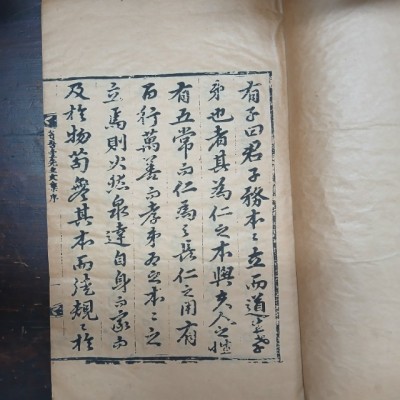 有子曰君子務本〻立而道生孝
弟也者其為仁之本與夫人之性
有五常而仁為之長仁之用有
百行萬善而孝弟為之本〻之
立焉則火然泉達自身而家而
及於物苟無其本而徒規〻於
先生文集序
一